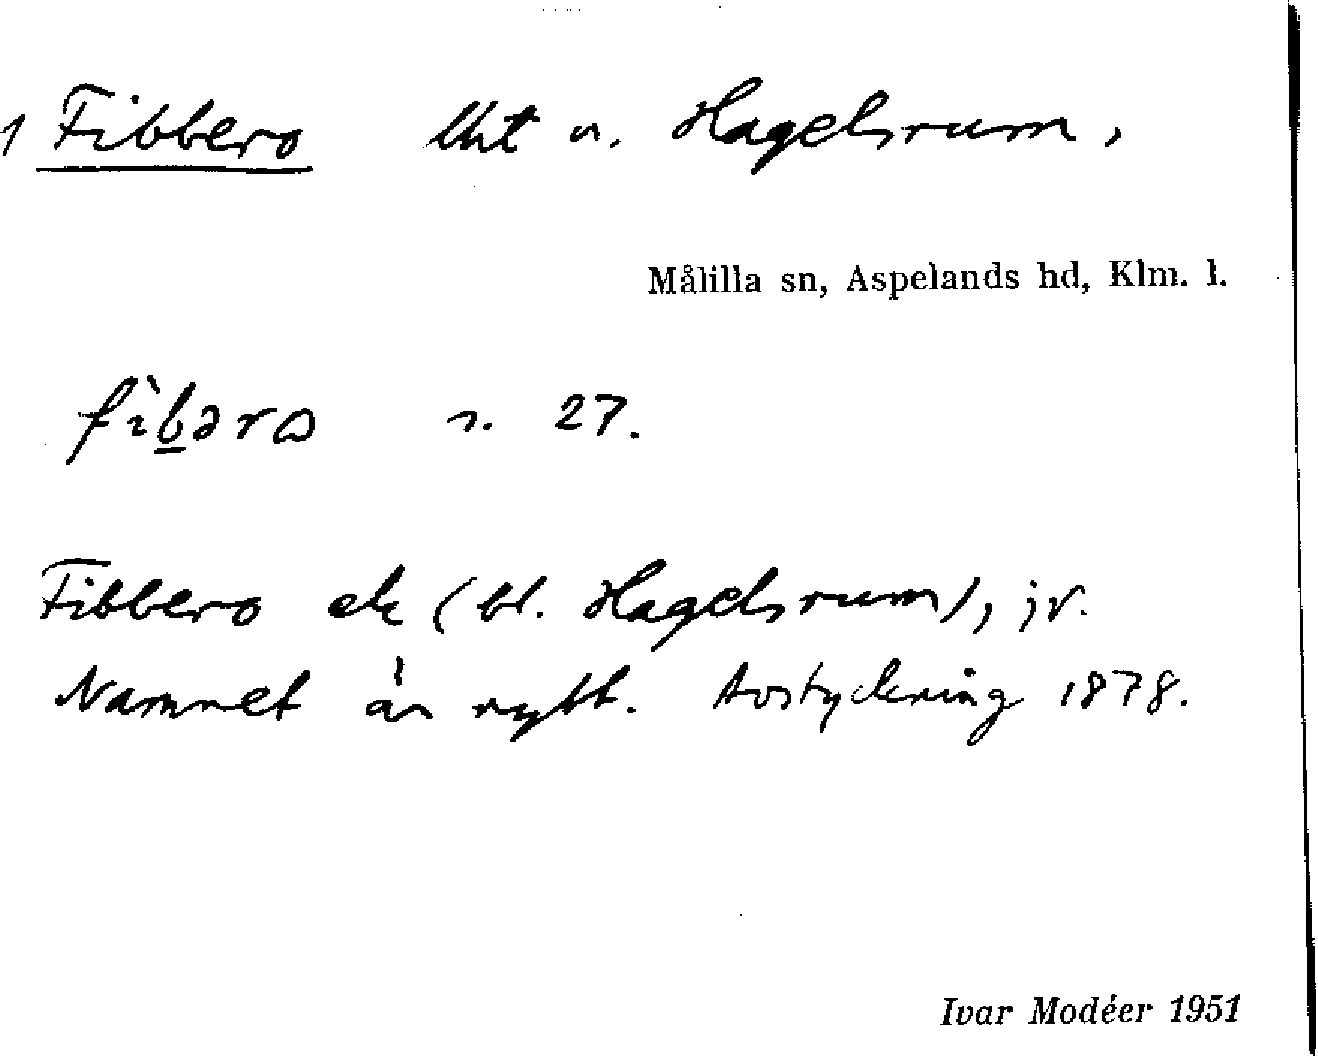 1 Fibbero lht u. Hagelsrum,
Målilla sn, Aspelands hd, Klm. l.
fìb̲əro n. 27.
Fibbero ek (bl. Hagelsrum), jr.
Namnet är nytt. Avstyckning 1878.
Ivar Modéer 1951